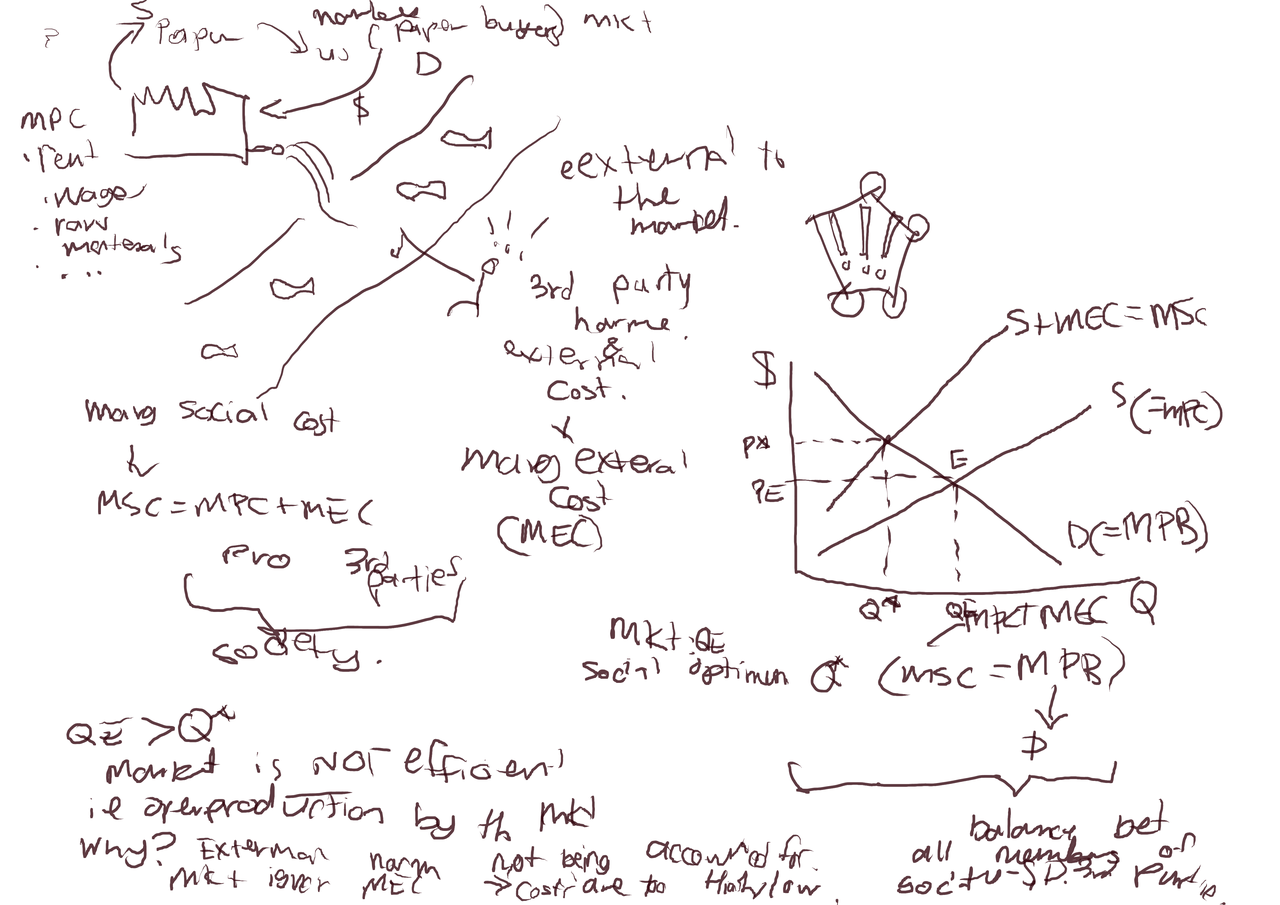 S
Paper
us
(paper buyers) mkt
D
$
MPC
· rent
· wage
· raw
materials
· ...
external to
the
market.
3rd party
harme
&
external
cost.
marg exteral
cost
(MEC)
marg social cost
MSC = MPC + MEC
Pro 3rd
parties
society.
$
S+MEC=MSC
S(=MPC)
P*
PE
E
D(=MPB)
Q*
QE
Q
MPC+MEC
Mkt: QE
social optimum Q* (MSC = MPB)
D
balance bet
all members of
society-S D. 3rd
QE > Q*
Market is NOT efficient
ie overproduction by th mkt
Why? External harm not being accounted for.
mkt ignor MEC → costs are to low.